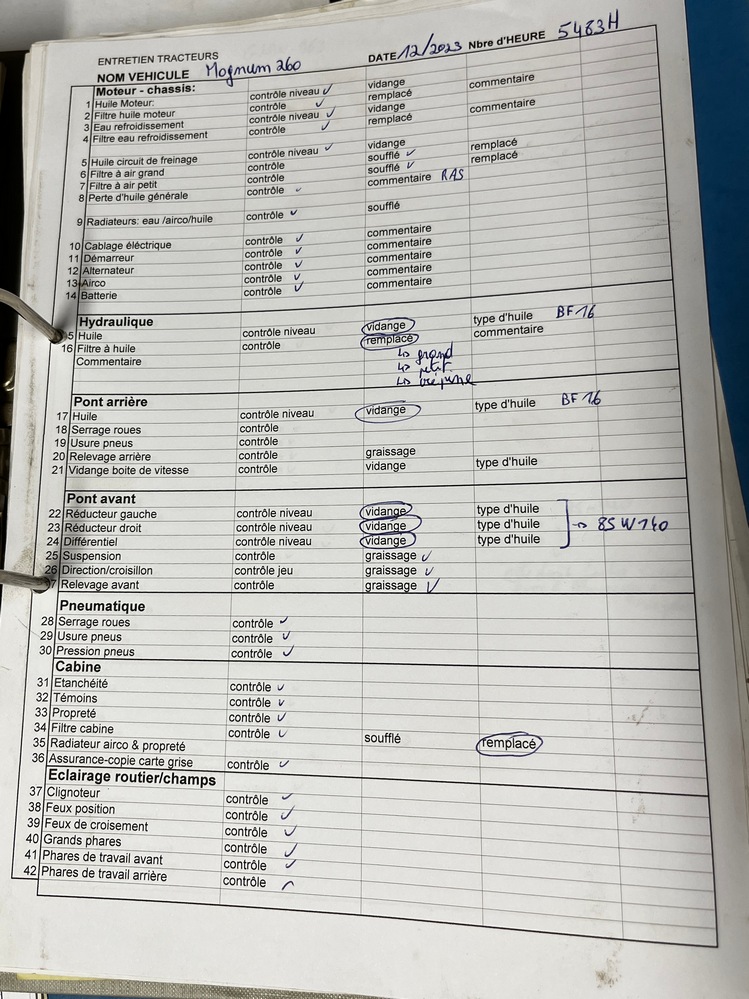 ENTRETIEN TRACTEURS DATE 12/2023 Nbre d'HEURE 5483H
NOM VEHICULE Magnum 260
Moteur - chassis:
1 Huile Moteur: contrôle niveau ✓ vidange commentaire
2 Filtre huile moteur contrôle ✓ remplacé
3 Eau refroidissement contrôle niveau ✓ vidange commentaire
4 Filtre eau refroidissement contrôle ✓ remplacé
5 Huile circuit de freinage contrôle niveau ✓ vidange remplacé
6 Filtre à air grand contrôle soufflé ✓ remplacé
7 Filtre à air petit contrôle soufflé ✓
8 Perte d'huile générale contrôle ✓ commentaire RAS
9 Radiateurs: eau /airco/huile contrôle ✓ soufflé
10 Cablage éléctrique contrôle ✓ commentaire
11 Démarreur contrôle ✓ commentaire
12 Alternateur contrôle ✓ commentaire
13 Airco contrôle ✓ commentaire
14 Batterie contrôle ✓ commentaire
Hydraulique
5 Huile contrôle niveau vidange type d'huile BF16
16 Filtre à huile contrôle remplacé commentaire
Commentaire ↳ grand
↳ petit
↳ crépine
Pont arrière
17 Huile contrôle niveau vidange type d'huile BF16
18 Serrage roues contrôle
19 Usure pneus contrôle
20 Relevage arrière contrôle graissage
21 Vidange boite de vitesse contrôle vidange type d'huile
Pont avant
22 Réducteur gauche contrôle niveau vidange type d'huile
23 Réducteur droit contrôle niveau vidange type d'huile → 85W140
24 Différentiel contrôle niveau vidange type d'huile
25 Suspension contrôle graissage ✓
26 Direction/croisillon contrôle jeu graissage ✓
7 Relevage avant contrôle graissage ✓
Pneumatique
28 Serrage roues contrôle ✓
29 Usure pneus contrôle ✓
30 Pression pneus contrôle ✓
Cabine
31 Etanchéité contrôle ✓
32 Témoins contrôle ✓
33 Propreté contrôle ✓
34 Filtre cabine contrôle ✓ soufflé remplacé
35 Radiateur airco & propreté
36 Assurance-copie carte grise contrôle ✓
Eclairage routier/champs
37 Clignoteur contrôle ✓
38 Feux position contrôle ✓
39 Feux de croisement contrôle ✓
40 Grands phares contrôle ✓
41 Phares de travail avant contrôle ✓
42 Phares de travail arrière contrôle ✓